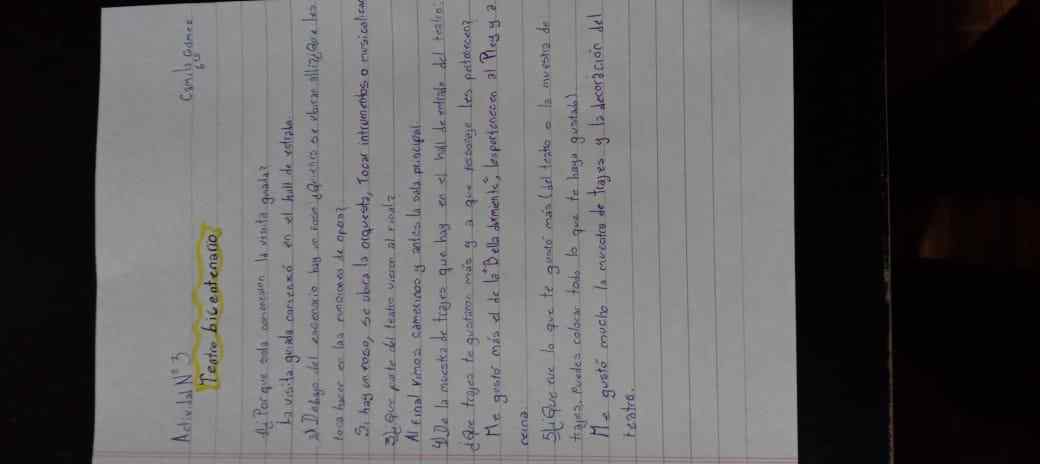 Actividad N° 3
Camila Gómez
Teatro bicentenario
1)¿Por que sala comenzaron la visita guiada?
La visita guiada comenzó en el hall de entrada.
2) Debajo del escenario hay un foso ¿Quienes se ubican alli?¿Que les
toca hacer en las funciones de opera?
Si hay un foso, se ubica la orquesta, Tocar intrumentos o musicalizar
3)¿Que parte del teatro vieron al final?
Al final vimos camerinos y antes la sala principal.
4) De la muestra de trajes que hay en el hall de entrada del teatro:
¿Que trajes te gustaron más y a que personaje les pertenecen?
Me gustó más el de la "Bella durmiente", les pertenecen al Rey y a
reina.
5)¿Que fue lo que te gustó más (del teatro o la muestra de
trajes, Puedes colocar todo lo que te haya gustado)
Me gustó mucho la muestra de trajes y la decoración del
teatro.